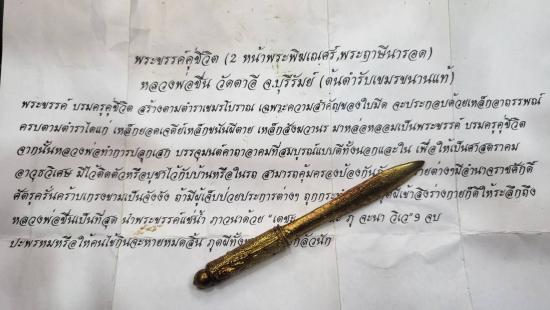 พระขรรค์คู่ชีวิต (2 หน้าพระพิฆเณศร์,พระฤาษีนารอด)
หลวงพ่อชื่น วัดตาอี จ.บุรีรัมย์ (ต้นตำรับเขมรขนานแท้)
พระขรรค์ บรมครูคู่ชีวิต สร้างตามตำราเขมรโบราณ เฉพาะความสำคัญของใบมีด จะประกอบด้วยเหล็กอาถรรพณ์
ครบตามตำราได้แก่ เหล็กยอดเจดีย์เหล็กขนันผีตาย เหล็กสังฆวานร มาหล่อหลอมเป็นพระขรรค์ บรมครูคู่ชีวิต
จากนั้นหลวงพ่อทำการปลุกเสก บรรจุมนต์คาถาอาคมที่สมบูรณ์แบบดีทั้งนอกและใน เพื่อให้เป็นศาสตราคม
อาวุธวิเศษ มีไว้ติดตัวหรือบูชาไว้กับบ้านหรือในรถ สามารถคุ้มครองป้องกัน ต่างมีอำนาจราชศักดิ์
ศัตรูครั่นคร้ามเกรงขามเป็นจังงัง ถ้ามีผู้เจ็บป่วยประการต่างๆ ถูกกระทำ ผีเข้าสิงร่างกายก็ดีให้ระลึกถึง
หลวงพ่อชื่นเป็นที่สุด นำพระขรรค์แช่น้ำ ภาวนาด้วย "เดชะ ภู จะนา วิเว" 9 จบ
ปะพรหมหรือให้คนไข้กินจะหายหมดสิ้น ภูตผีทั้ง กลัวนัก